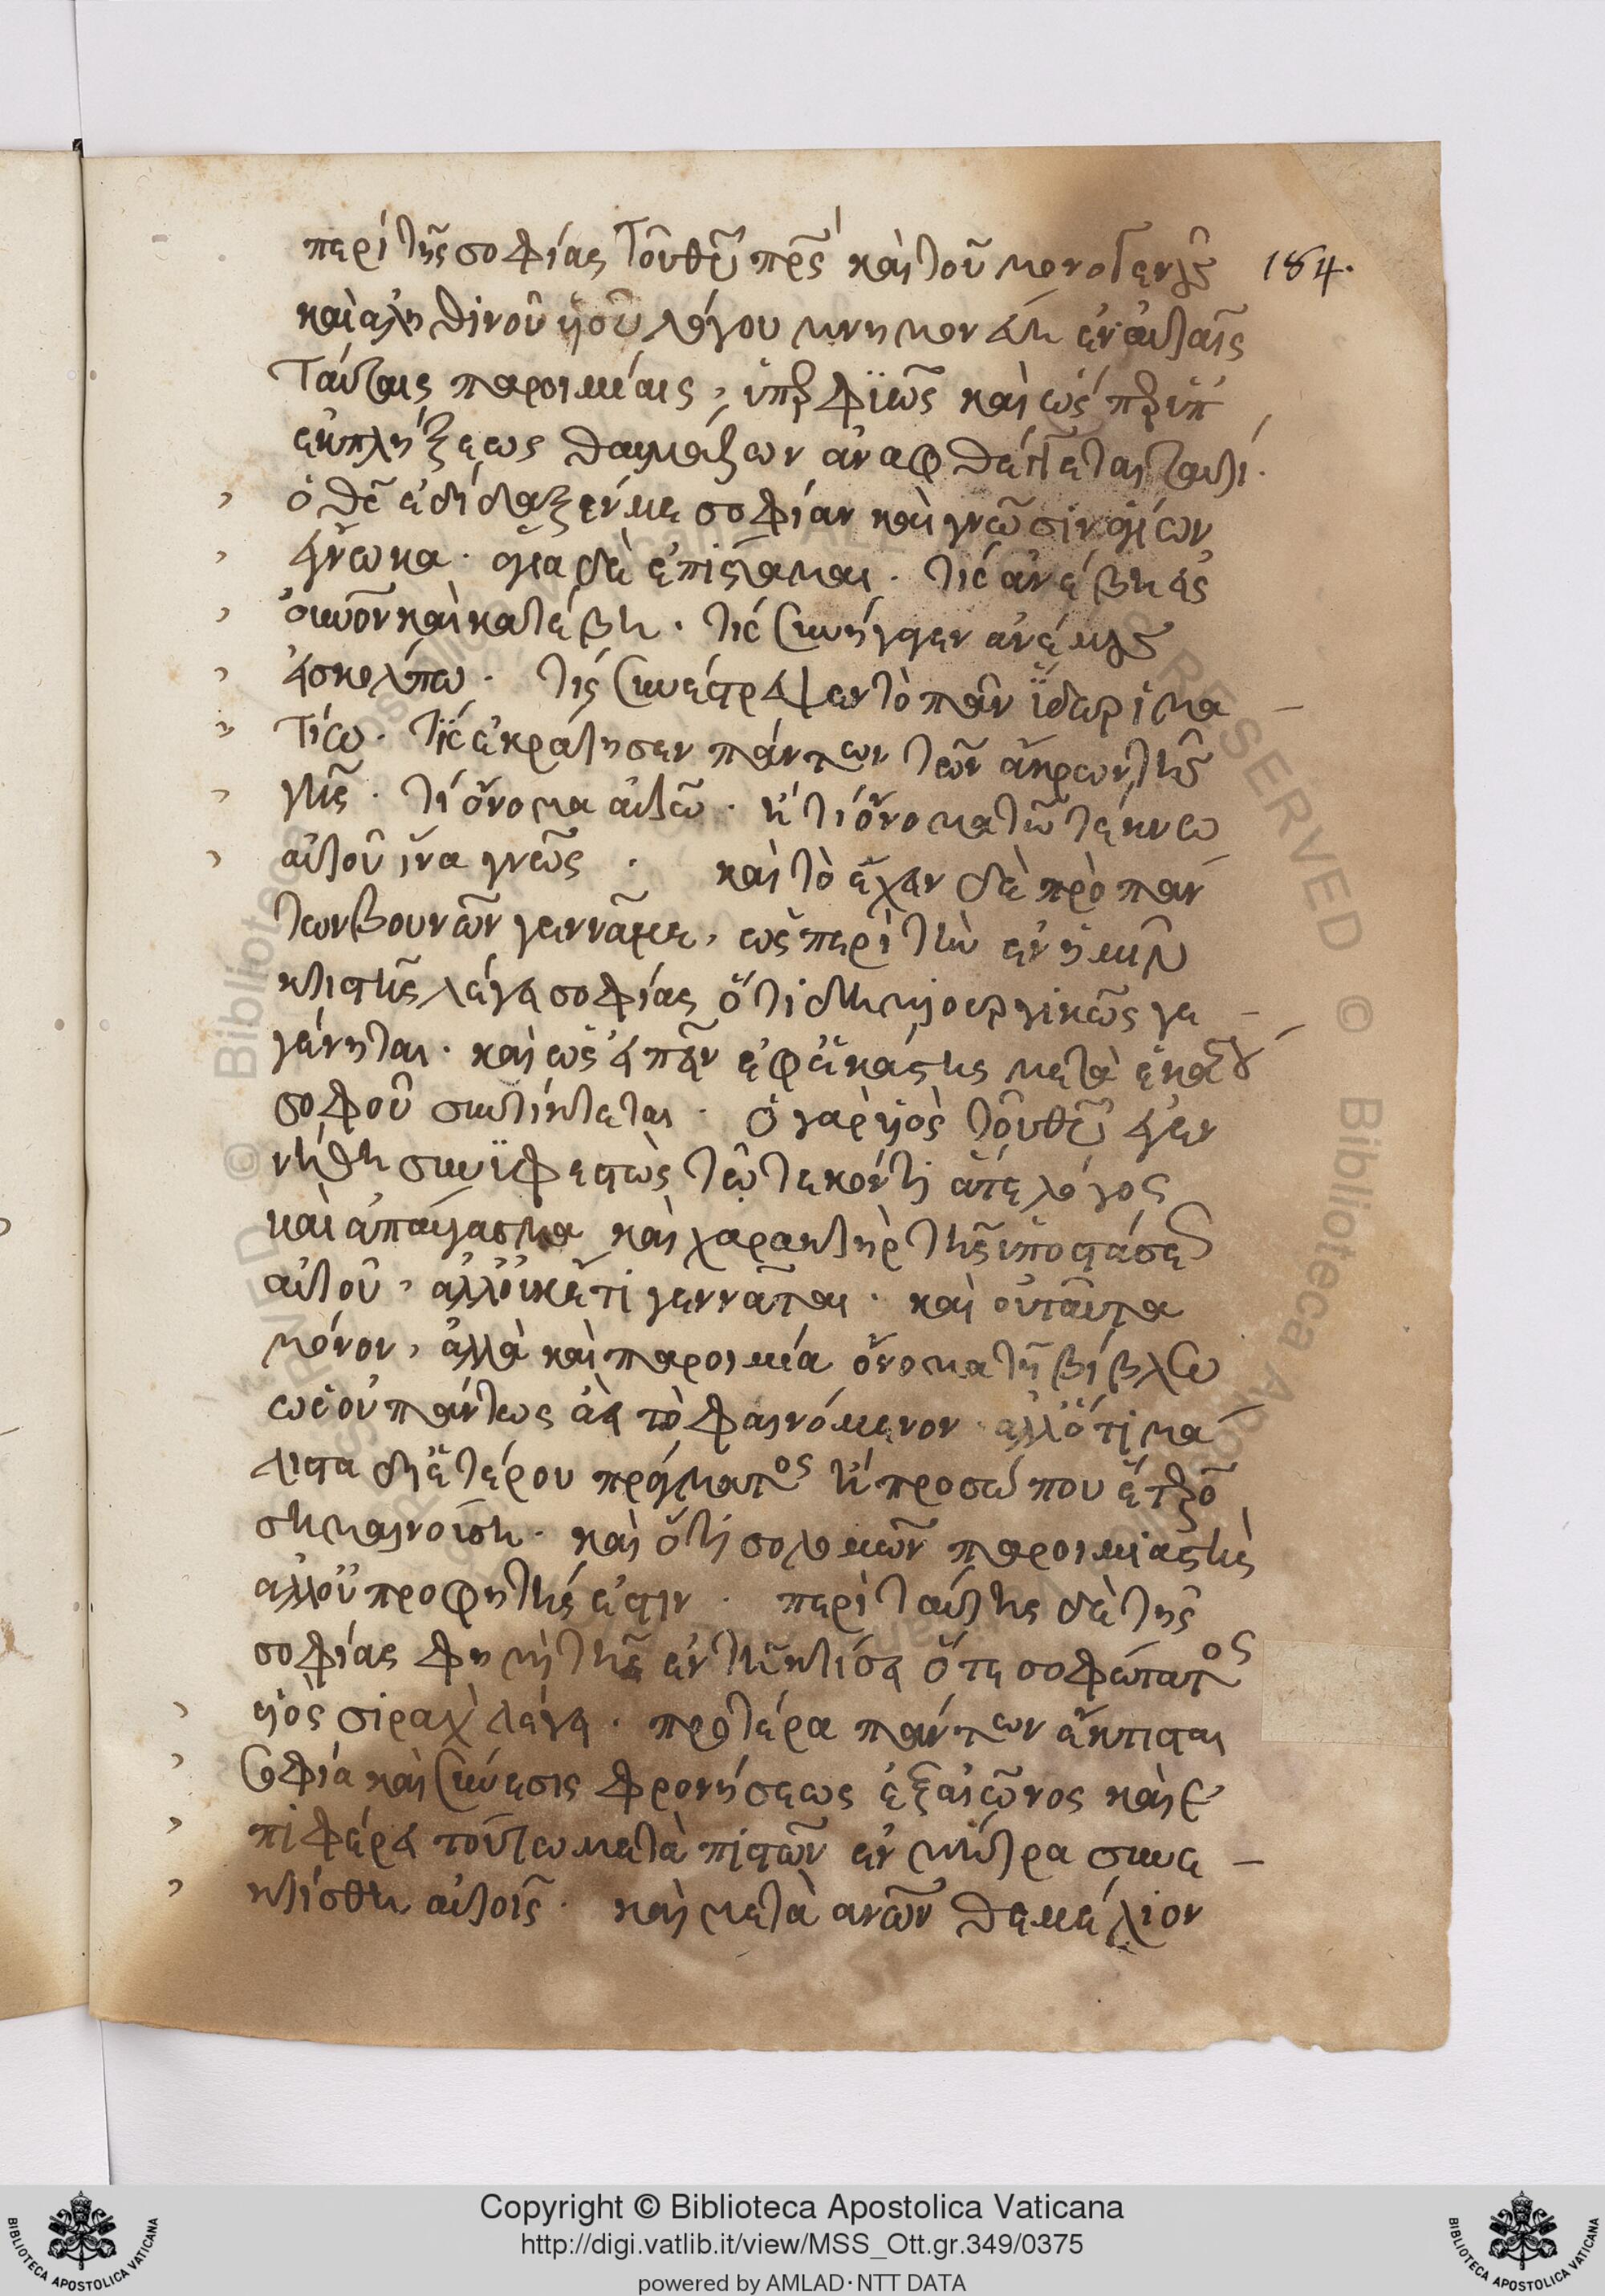 περὶ τῆς σοφίας τοῦ θῦ πρς καὶ τοῦ μονογενοῦς
184.
καὶ αληθινοῦ υἱοῦ λόγου μνημονεύει ἐν αὐταῖς
ταύταις παροιμίαις,
ἐκπλήξεως θαυμάζων ἀναφθέγγεται ταυτί.
ὁ θς ἐδίδαξέν με σοφίαν καὶ γνῶσιν ἁγίων
ἔγνωκα. ἅγια δὲ ἐπίσταμαι. τίς ἀνέβη εἰς
οὐνον καὶ κατέβη. τίς συνήγαγεν ἀνέμους
ἐν κόλπω. τίς συνέστρεψεν τὸ πᾶν ὕδωρ ἱμα
τίω. τίς ἐκράτησεν πάντων τῶν ἄκρων τῆς
γῆς. τί ὄνομα αὐτῶ. ἢ τί ὄνομα τῶ τέκνω
αὐτοῦ ἵνα γνῶς. καὶ τὸ ἔχειν δὲ πρὸ πάν
των βουνῶν γεννᾶ με, ὡς περὶ τὴν ἐν ἡμῖν
κτιστῆς λέγει σοφίας ὅτι δημιουργικῶς γε
γένηται. καὶ ὡς εἰπεῖν ἐφ ἑκάστης μετὰ ἑκάστου
σοφοῦ συντίκτεται. ὁ γὰρ υἱὸς τοῦ θῦ ἐγεν
νήθη συνυφεστὼς τῶ τεκόντι ἅτε λόγος
καὶ ἀπαύγασμα καὶ χαρακτὴρ τῆς ὑποστάσεως
αὐτοῦ, ἀλλ οὐκέτι γεννᾶται. καὶ οὐ ταῦτα
μόνον, ἀλλὰ καὶ παροιμία ὄνομα τῆ βίβλω
ὡς οὐ πάντως εἰς τὸ φαινόμενον ἀλλ ὅτι μά
λιστα δι ἑτέρου πράγματος ἢ προσώπου ἕτερον
σημαινούση. καὶ ὅτι σολομῶν παροιμιαστὴς
ἀλλ οὐ προφητής ἐστιν. περὶ ταύτης δὲ τῆς
σοφίας φημὶ τῆς ἐν τῆ κτίσει ὅτε σοφώτατος
υἱὸς σιραχ λέγει. προτέρα πάντων ἔκτισται
σοφία καὶ σύνεσις φρονήσεως ἐξ αἰῶνος καὶ ἐ
πιφέρει τούτω μετὰ πιστῶν ἐν μήτρα συνε
κτίσθη αὐτοῖς. καὶ μετὰ ανων θεμέλιον
Copyright © Biblioteca Apostolica Vaticana
http://digi.vatlib.it/view/MSS_Ott.gr.349/0375
powered by AMLAD·NTT DATA
BIBLIOTECA APOSTOLICA VATICANA
BIBLIOTECA APOSTOLICA VATICANA